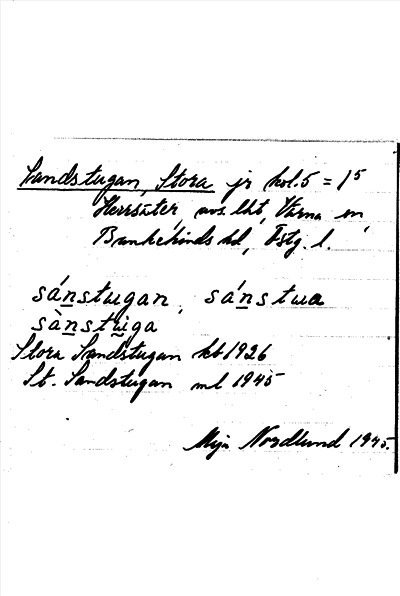 Sandstugan, Stora jr kol. 5 = 1⁵
Herrsäter avs. lht, Värna sn,
Bankekinds hd, Östg. l.
sánstugan, sánstua
sànstuga
Stora Sandstugan kb 1926
St. Sandstugan ml 1945
Nordlund 1945.